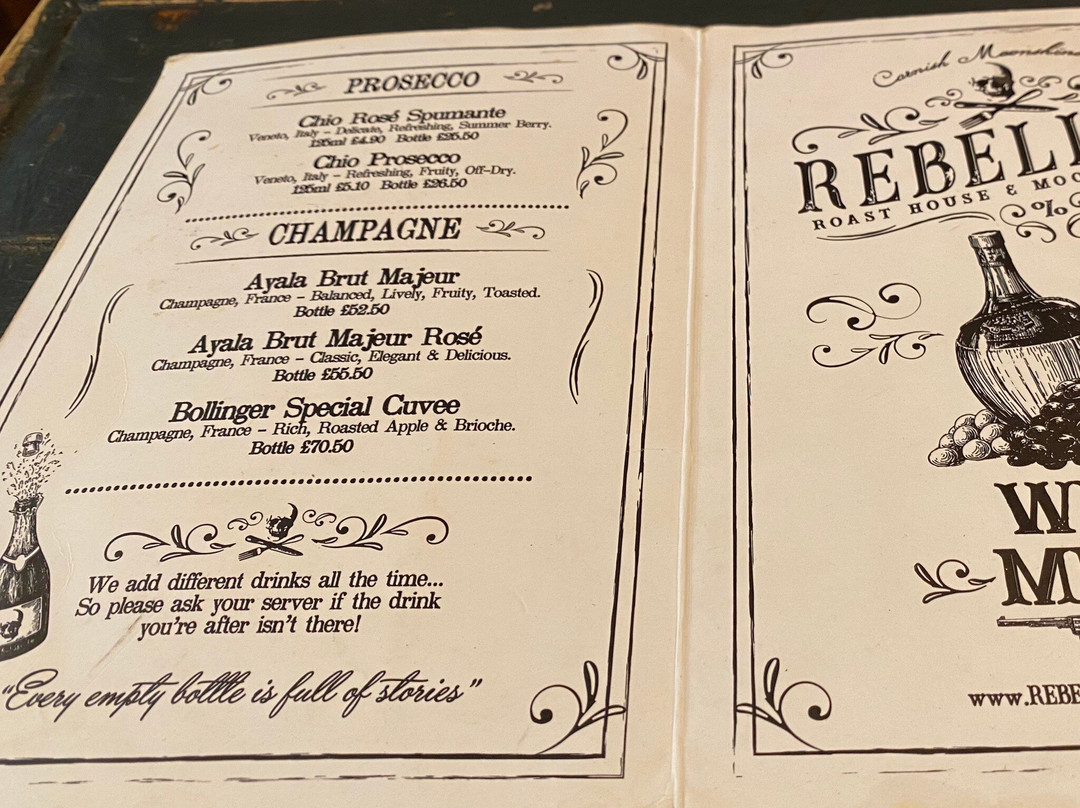 PROSECCO
Chio Rosé Spumante
Veneto, Italy - Delicate, Refreshing, Summer Berry.
125ml £4.90 Bottle £25.50
Chio Prosecco
Veneto, Italy - Refreshing, Fruity, Off-Dry.
125ml £5.10 Bottle £26.50
CHAMPAGNE
Ayala Brut Majeur
Champagne, France - Balanced, Lively, Fruity, Toasted.
Bottle £52.50
Ayala Brut Majeur Rosé
Champagne, France - Classic, Elegant & Delicious.
Bottle £55.50
Bollinger Special Cuvee
Champagne, France - Rich, Roasted Apple & Brioche.
Bottle £70.50
We add different drinks all the time...
So please ask your server if the drink
you're after isn't there!
"Every empty bottle is full of stories"
Cornish Moonshine
REBELL
ROAST HOUSE & MOO
%
W
M
www.REBE